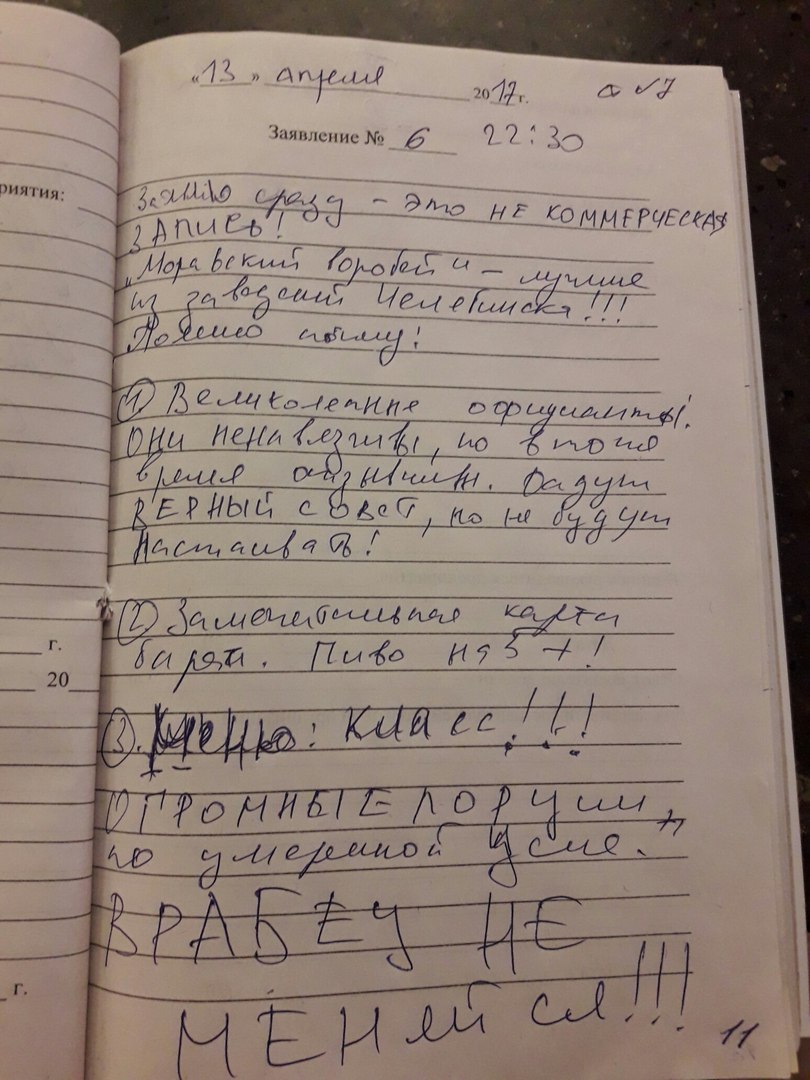 «13» апреля 2017г.
Заявление № 6 22:30
риятия:
Заявлю сразу – это НЕ КОММЕРЧЕСКАЯ
ЗАПИСЬ!
„Моравский воробей" – лучшее
из заведений Челябинска!!!
Поясню почему!
1) Великолепные официанты!
Они ненавязчивы, но в то же
время отзывчивы. Дадут
ВЕРНЫЙ совет, но не будут
настаивать!
2) Замечательная карта
бара. Пиво на 5+!
г.
20
3. Меню: класс!!!
ОГРОМНЫЕ порции,
по умеренной цене.
ВРАБЕЦ НЕ
МЕНЯЙСЯ!!!
г.
11